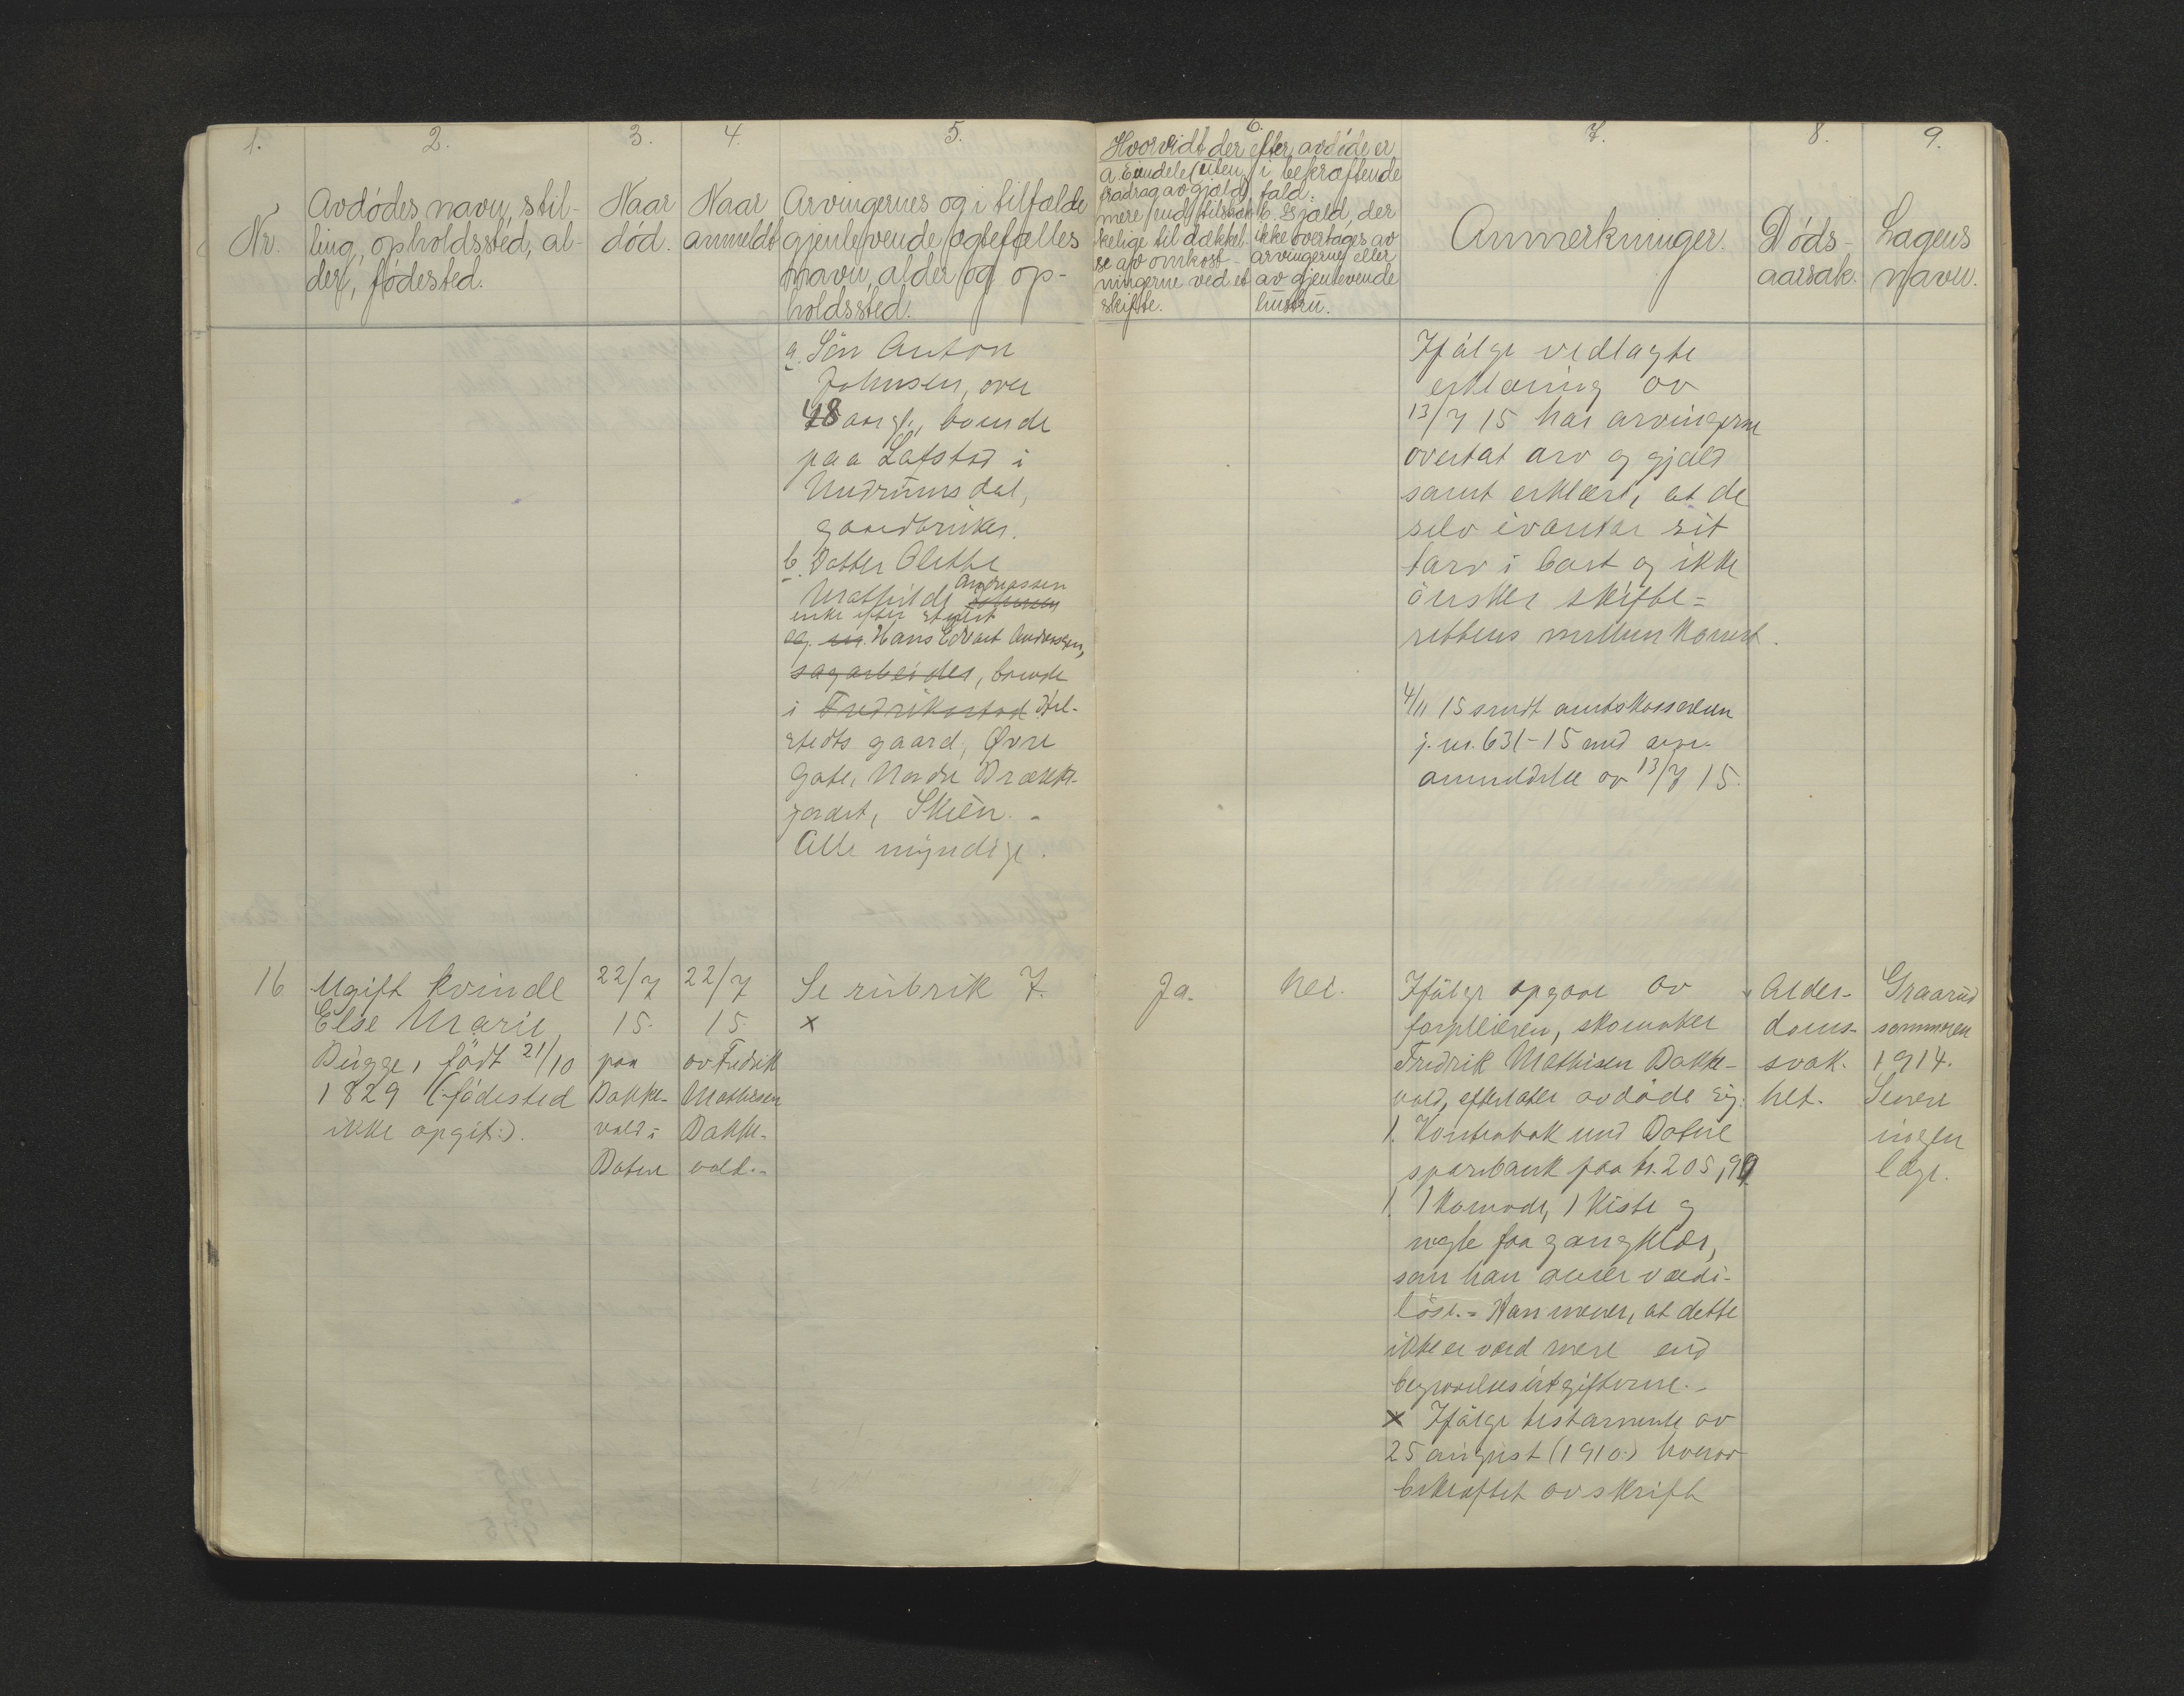 1.
2.
3.
4.
5.
6.
7.
8.
9.
Nr.
Avdødes navn, stil-
ling, opholdssted, al-
der, fødested.
Naar
død.
Naar
anmeldt
Arvingernes og i tilfælde
gjenlevende ægtefælles
navn, alder og op-
holdssted.
Hvorvidt der efter avdøde er
a. Eiendele (uten
fradrag av gjæld)
mere end tilstræk-
kelige til dækkel-
se av omkost-
ningerne ved et
skifte.
i bekræftende
fald.
b. Gjæld, der
ikke overtages av
arvingerne eller
av gjenlevende
hustru.
Anmerkninger.
Døds-
aarsak.
Lægens
navn.
a. Søn Anton
Johnsen, over
48 aar gl., boende
paa Lofstad i
Undrumsdal,
gaardbruker.
b. Datter Olette
Mathilde Andreassen
enke efter
Hans Edvart Andersen,
sagarbeider, boende
i Fredrikstad Hol-
stedts gaard, Øvre
Gate, Nordre
Skien. -
Alle myndige.
Ifølge vedlagte
erklæring av
13/7 15 har arvingerne
overtat arv og gjæld
samt erklært, at de
selv ivaretar sit
tarv i boet og ikke
ønsker skifte-
rettens mellemkomst.
4/11 15 sendt amtskassereren
j. nr. 631-15 med arve-
anmeldelse av 13/7 15.
16
Ugift kvinde
Else Marie
Bugge, født 21/10
1829 (:fødested
ikke opgit:).
22/7
15.
paa
Bakke-
vold i
Botne
22/7
15.
av Fredrik
Mathisen
Bakke-
vold.-
Se rubrik 7.
x
Ja.
Nei.
Ifølge opgave av
forpleieren, skomaker
Fredrik Mathisen Bakke-
vold, efterlater avdøde sig:
1. Kontrabok med Botne
sparebank paa kr. 205,99
1. 1 komode, 1 kiste og
nogle faa gangklær,
som han anser værdi-
løse.- Han mener, at dette
ikke er værd mere end
begravelsesutgifterne.-
x Ifølge testamente av
25 august (1910:) hvorav
bekræftet avskrift
Alder-
doms-
svak-
het.
Graarud
sommeren
1914.
Senere
ingen
læge.